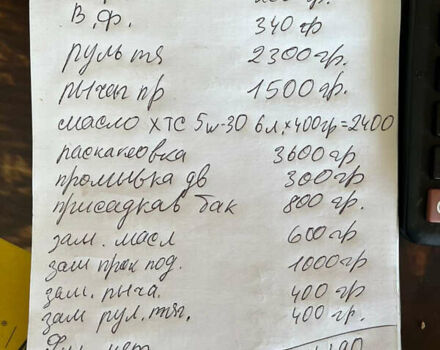 В.Ф. 340гр
руль тя 2300гр.
рычаг пр 1500гр.
масло XTC 5w-30 6л,×400гр=2400
раскаксовка 3600гр
промывка дв 300гр
присадка в бак 800гр.
зам. масл 600гр
зам прок под. 1000гр
зам. рыча. 400гр
зам рул. тяг. 400гр.